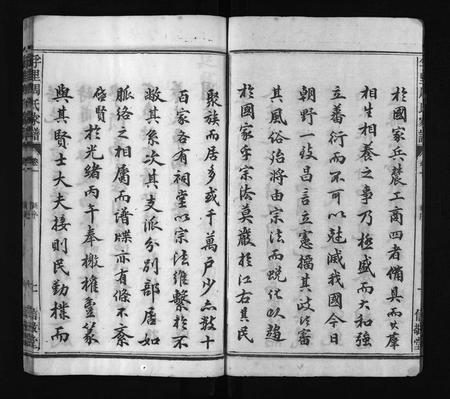 於國家兵農工商四者備具而其羣
相生相養之事乃極盛而大和強
立蕃衍而不可以尅減我國今日
朝野一致昌言立憲擂其政治審
其風俗治將由宗法而蛻化以趨
於國家乎宗法莫嚴於江右其民
聚族而居多或千萬戶少亦數十
百家各有祠堂以宗法維繫於不
敝其系次其支派分別部居如
脈絡之相屬而譜牒亦有條不紊
啟賢於光緒丙午奉檄權豐篆
與其賢士大夫接則民勤樸而
周氏家譜
卷
七